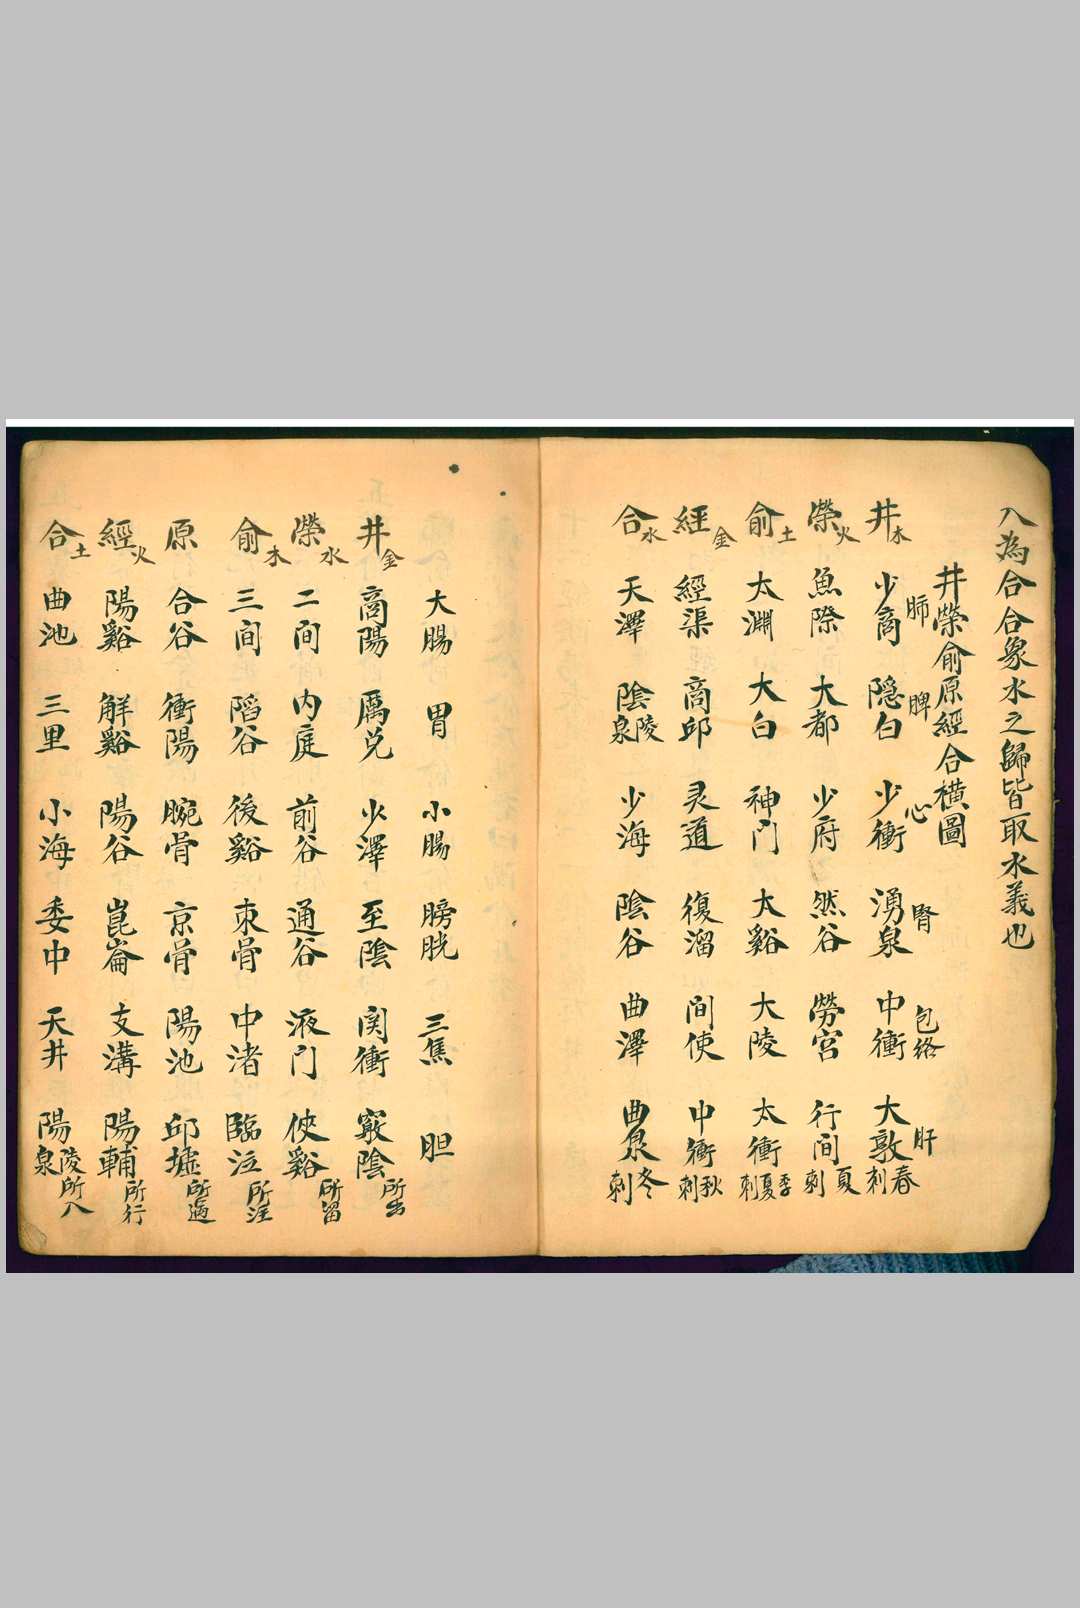 入為合合象水之歸皆取水義也
井滎俞原經合橫圖
肺 脾 心 腎 包絡 肝
井木 少商 隱白 少衝 湧泉 中衝 大敦 春刺
滎火 魚際 大都 少府 然谷 勞宮 行間 夏刺
俞土 太淵 大白 神門 太谿 大陵 太衝 季夏刺
經金 經渠 商邱 灵道 復溜 間使 中衝 秋刺
合水 天澤 陰陵泉 少海 陰谷 曲澤 曲泉 冬刺
大腸 胃 小腸 膀胱 三焦 胆
井金 商陽 厲兌 少澤 至陰 関衝 竅陰 所出
滎水 二間 內庭 前谷 通谷 液門 俠谿 所留
俞木 三間 陷谷 後谿 束骨 中渚 臨泣 所注
原 合谷 衝陽 腕骨 京骨 陽池 邱墟 所過
經火 陽谿 解谿 陽谷 崑崙 支溝 陽輔 所行
合土 曲池 三里 小海 委中 天井 陽陵泉 所入